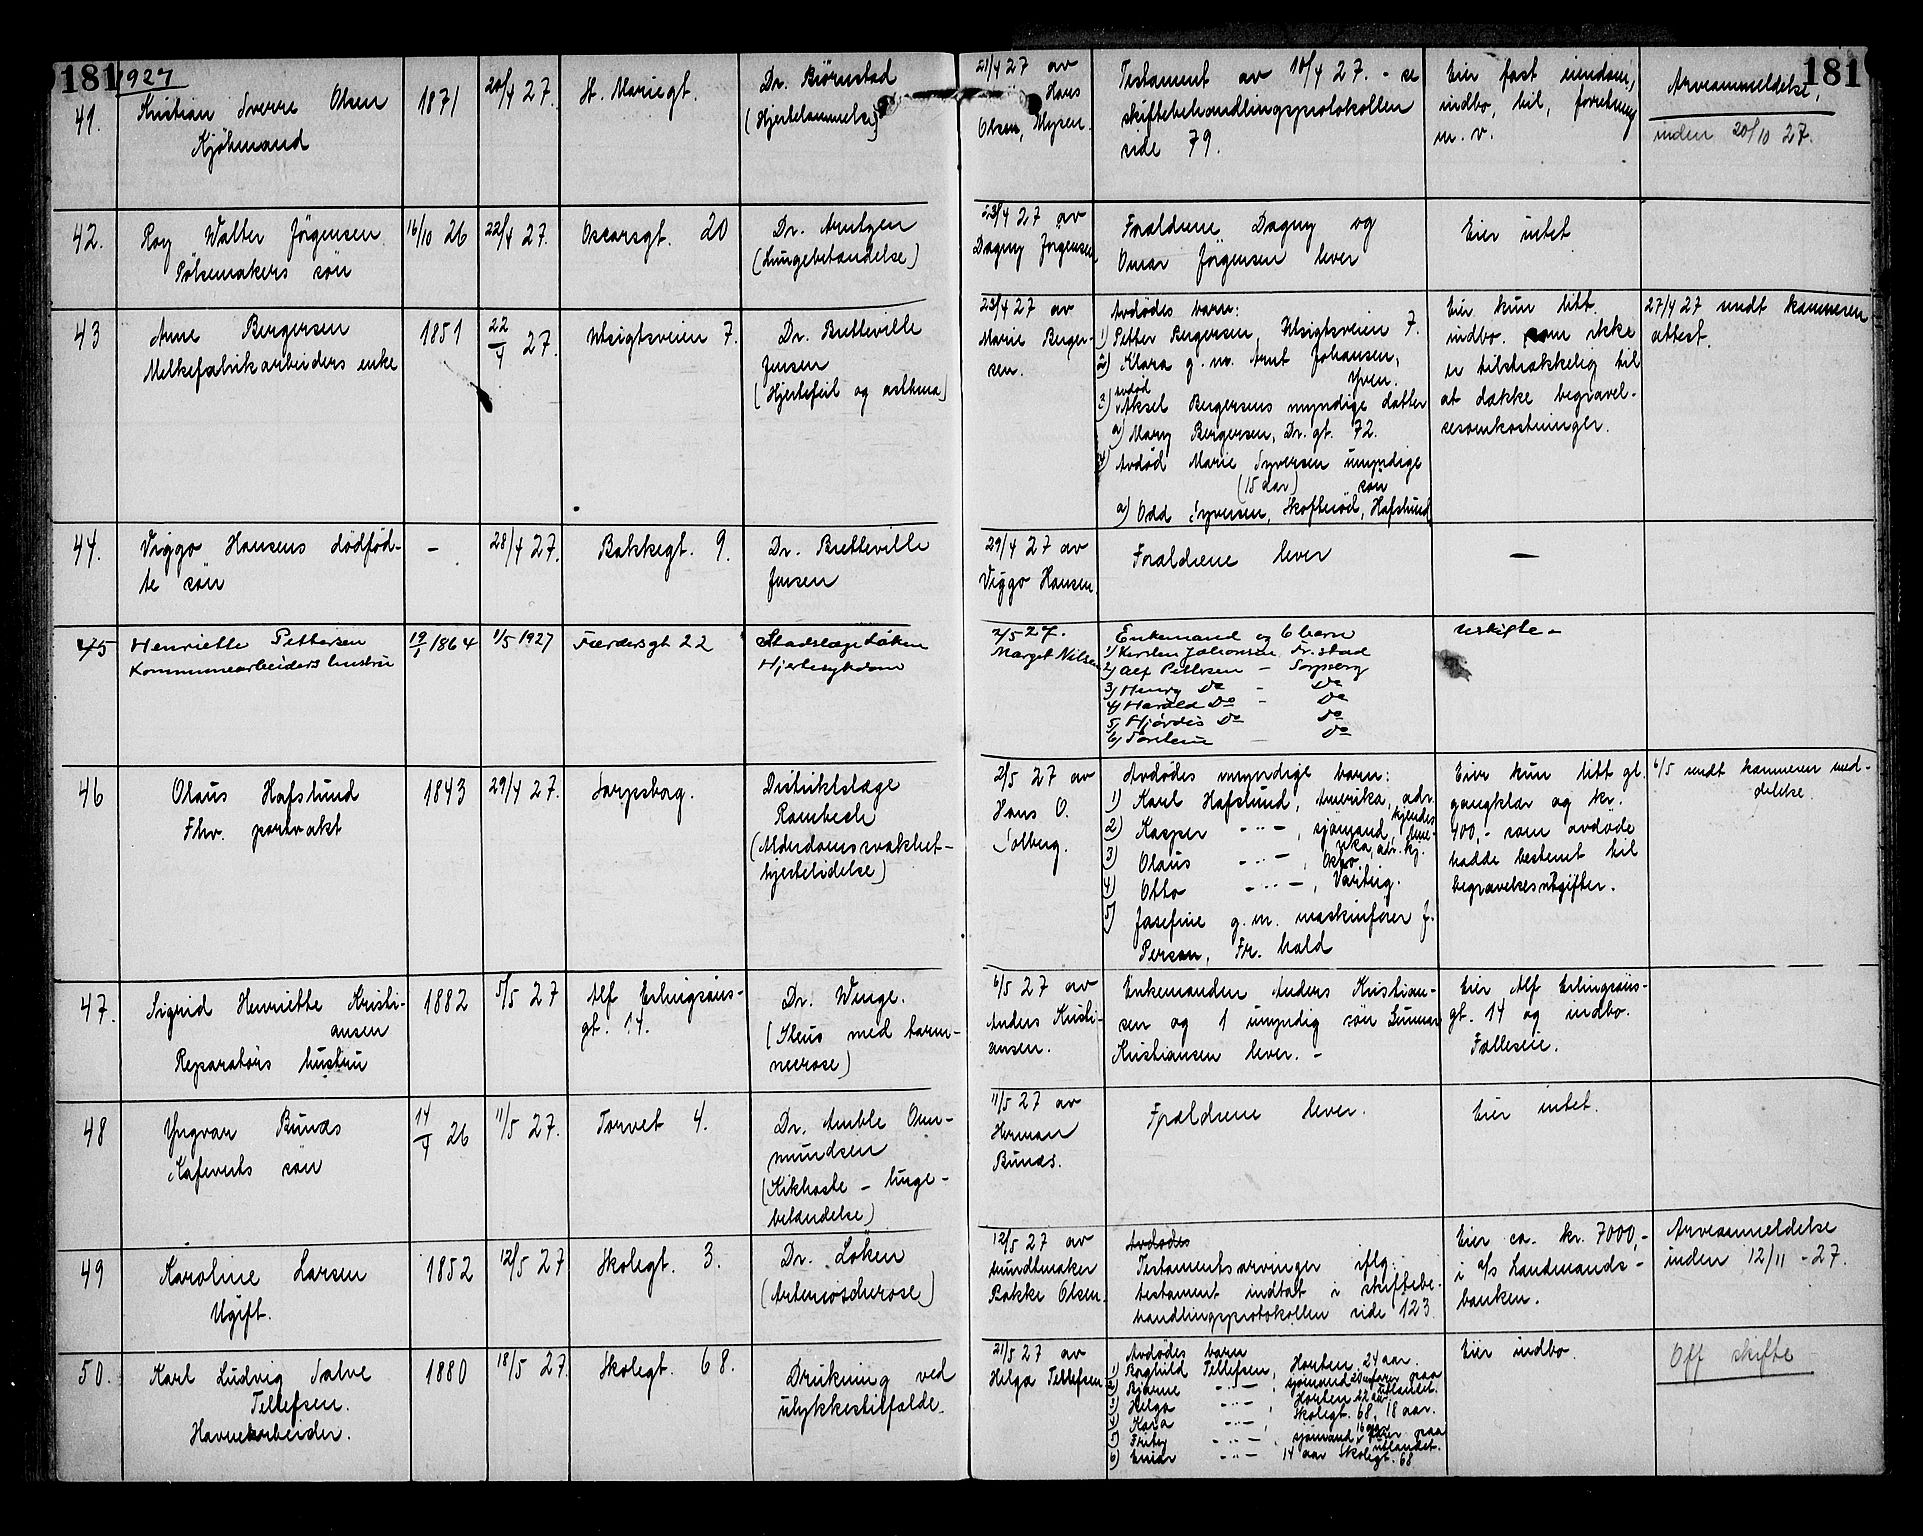 181
1927
181
41.
Kristian Sverre Olsen
Kjöbmand
1871
20/4 27.
St. Mariegt.
Dr. Björnstad
(Hjertelammelse)
21/4 27 av
Hans
Olsen, Mysen.
Testament av 10/4 27. - se
skiftebehandlingsprotokollen
side 79.
Eier fast eiendom,
indbo, bil, forretning
m. v.
Arveanmeldelse,
inden 20/10 27.
42.
Roy Walter Jörgensen
Pölsemakers sön
16/10 26
22/4 27.
Oscarsgt. 20
Dr. Arntzen
(Lungebetændelse)
23/4 27 av
Dagny Jörgensen
Forældrene Dagny og
Omar Jörgensen lever
Eier intet
43
Anne Bergersen
Melkefabrikarbeiders enke
1851
22/4 27.
Utsigtsveien 7.
Dr. Bretteville
Jensen
(Hjertefeil og asthma)
23/4 27 av
Marie Berger-
sen.
Avdödes barn:
1) Petter Bergersen, Utsigtsveien 7.
2) Klara g. m. Arnt Johansen,
Yven.
3) avdöd Aksel Bergersens myndige datter
a) Mary Bergersen, Dr. gt. 72.
4) Avdöd Marie Syversen umyndige
(15 aar) sön
a) Odd Syversen, Skofteröd, Hafslund
Eier kun litt
indbo som ikke
er tilstrækkelig til
at dække begravel-
sesomkostninger.
27/4 27 sendt kæmneren
attest.
44.
Viggo Hansens dödföd-
te sön
-
28/4 27.
Bakkegt. 9.
Dr. Bretteville
Jensen
29/4 27 av
Viggo Hansen.
Forældrene lever
-
45
Henriette Pettersen
Kommunearbeiders hustru
19/1 1864
1/5 1927
Færdersgt 22
Stadslæge Løken
Hjertesykdom
2/5 27.
Marget Nilsen
Enkemand og 6 barn
1) Kirsten Johansen Fr.stad
2) Alf Pettersen - Sarpsborg
3) Henry Do - Do
4) Harald Do - Do
5) Hjørdis Do Do
6) Torstein - Do
Uskifte -
46
Olaus Hafslund
Fhv. portvakt
1843
29/4 27.
Sarpsborg.
Distriktslæge
Rambech
(Alderdomssvakhet -
hjertelidelse)
2/5 27 av
Hans O.
Solberg.
Avdödes myndige barn:
1) Karl Hafslund, Amerika, adr.
kjendes
2) Kasper -"- , sjömand, Ame-
rika, adr. kj.
3) Olaus -"- , Oslo.
4) Otto -"- , Varteig.
5) Josefine g. m. maskinförer J.
Person, Fr. hald
Eier kun litt gl.
gangklær og kr.
400,- som avdöde
hadde bestemt til
begravelsesutgifter.
6/5 sendt kæmneren med-
delelse.
47.
Sigrid Henriette Kristi-
ansen
Reparatörs hustru
1882
5/5 27
Alf Erlingsöns-
gt. 14.
Dr. Winge.
(Ileus med tarm-
necrose)
6/5 27 av
Anders Kristi-
ansen.
Enkemanden Anders Kristian-
sen og 1 umyndig sön Gunnar
Kristiansen lever. -
Eier Alf Erlingsöns-
gt. 14 og indbo.
Fælleseie.
48
Yngvar Bunæs
Kafeverts sön
14/4 26
11/5 27.
Torvet 4.
Dr. Amble Om-
mundsen
(Kikhoste - lunge-
betændelse)
11/5 27 av
Herman
Bunæs.
Forældrene lever.
Eier intet.
49
Karoline Larsen
Ugift.
1852
12/5 27
Skolegt. 3.
Dr. Löken
(Arteriosclerose)
12/5 27 av
bundtmaker
Bakke Olsen.
Avdödes
Testamentsarvinger iflg.
testament indtat i skiftebe-
handlingsprotokollen side 123
Eier ca. kr. 7000,-
i a/s Landmands-
banken.
Arveanmeldelse
inden 12/11 - 27.
50.
Karl Ludvig Salve
Tellefsen.
Havnearbeider.
1880
18/5 27.
Skolegt. 68.
Drukning ved
ulykkestilfælde.
21/5 27 av
Helga Tellefsen
Avdödes barn
1) Borghild Tellefsen, Horten, 24 aar.
2) Bjarne -"- , sjömand i fart paa
utlandet.
3) Helga -"- , Horten 22 aar
4) Kara -"- , Skolegt. 68, 18 aar.
5) Fritz -"- , sjömand 16 aar paa
utlandet.
6) Einar -"- 14 aar Skolegt. 68
Eier indbo.
Off skifte